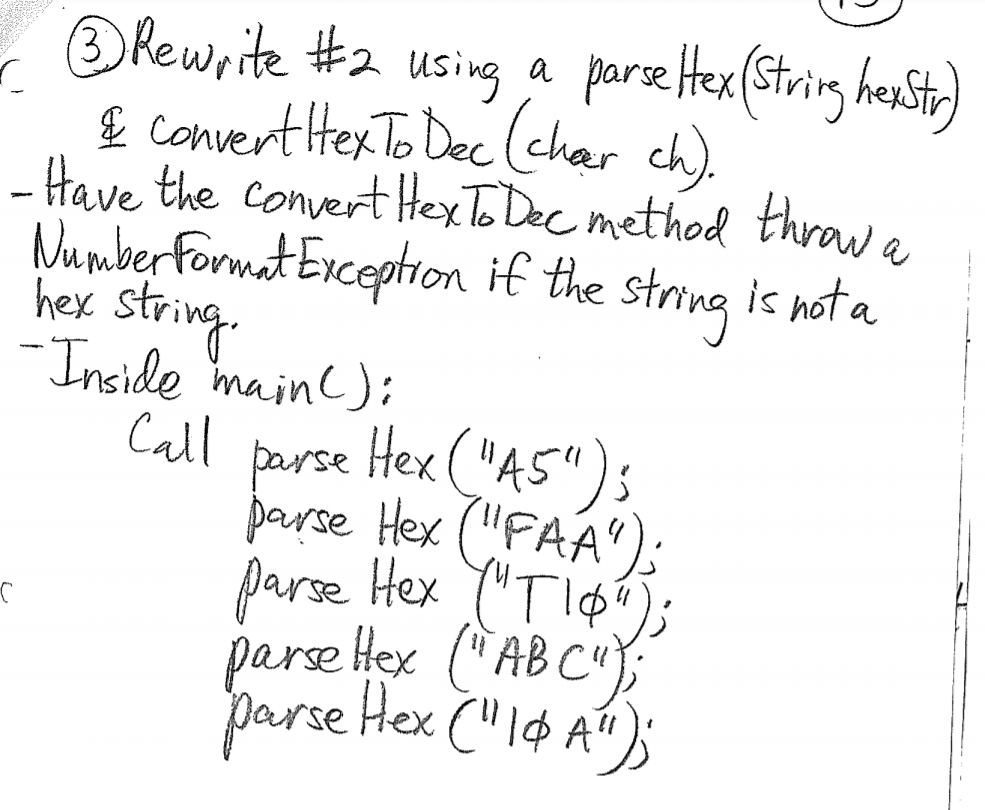 ③ Rewrite #2 using a parseHex(String hexStr)
& convertHexToDec(char ch).
- Have the convertHexToDec method throw a
NumberFormatException if the string is not a
hex string.
- Inside main():
Call parseHex("A5");
parseHex("FAA");
parseHex("T1φ");
parseHex("ABC");
parseHex("1φA");